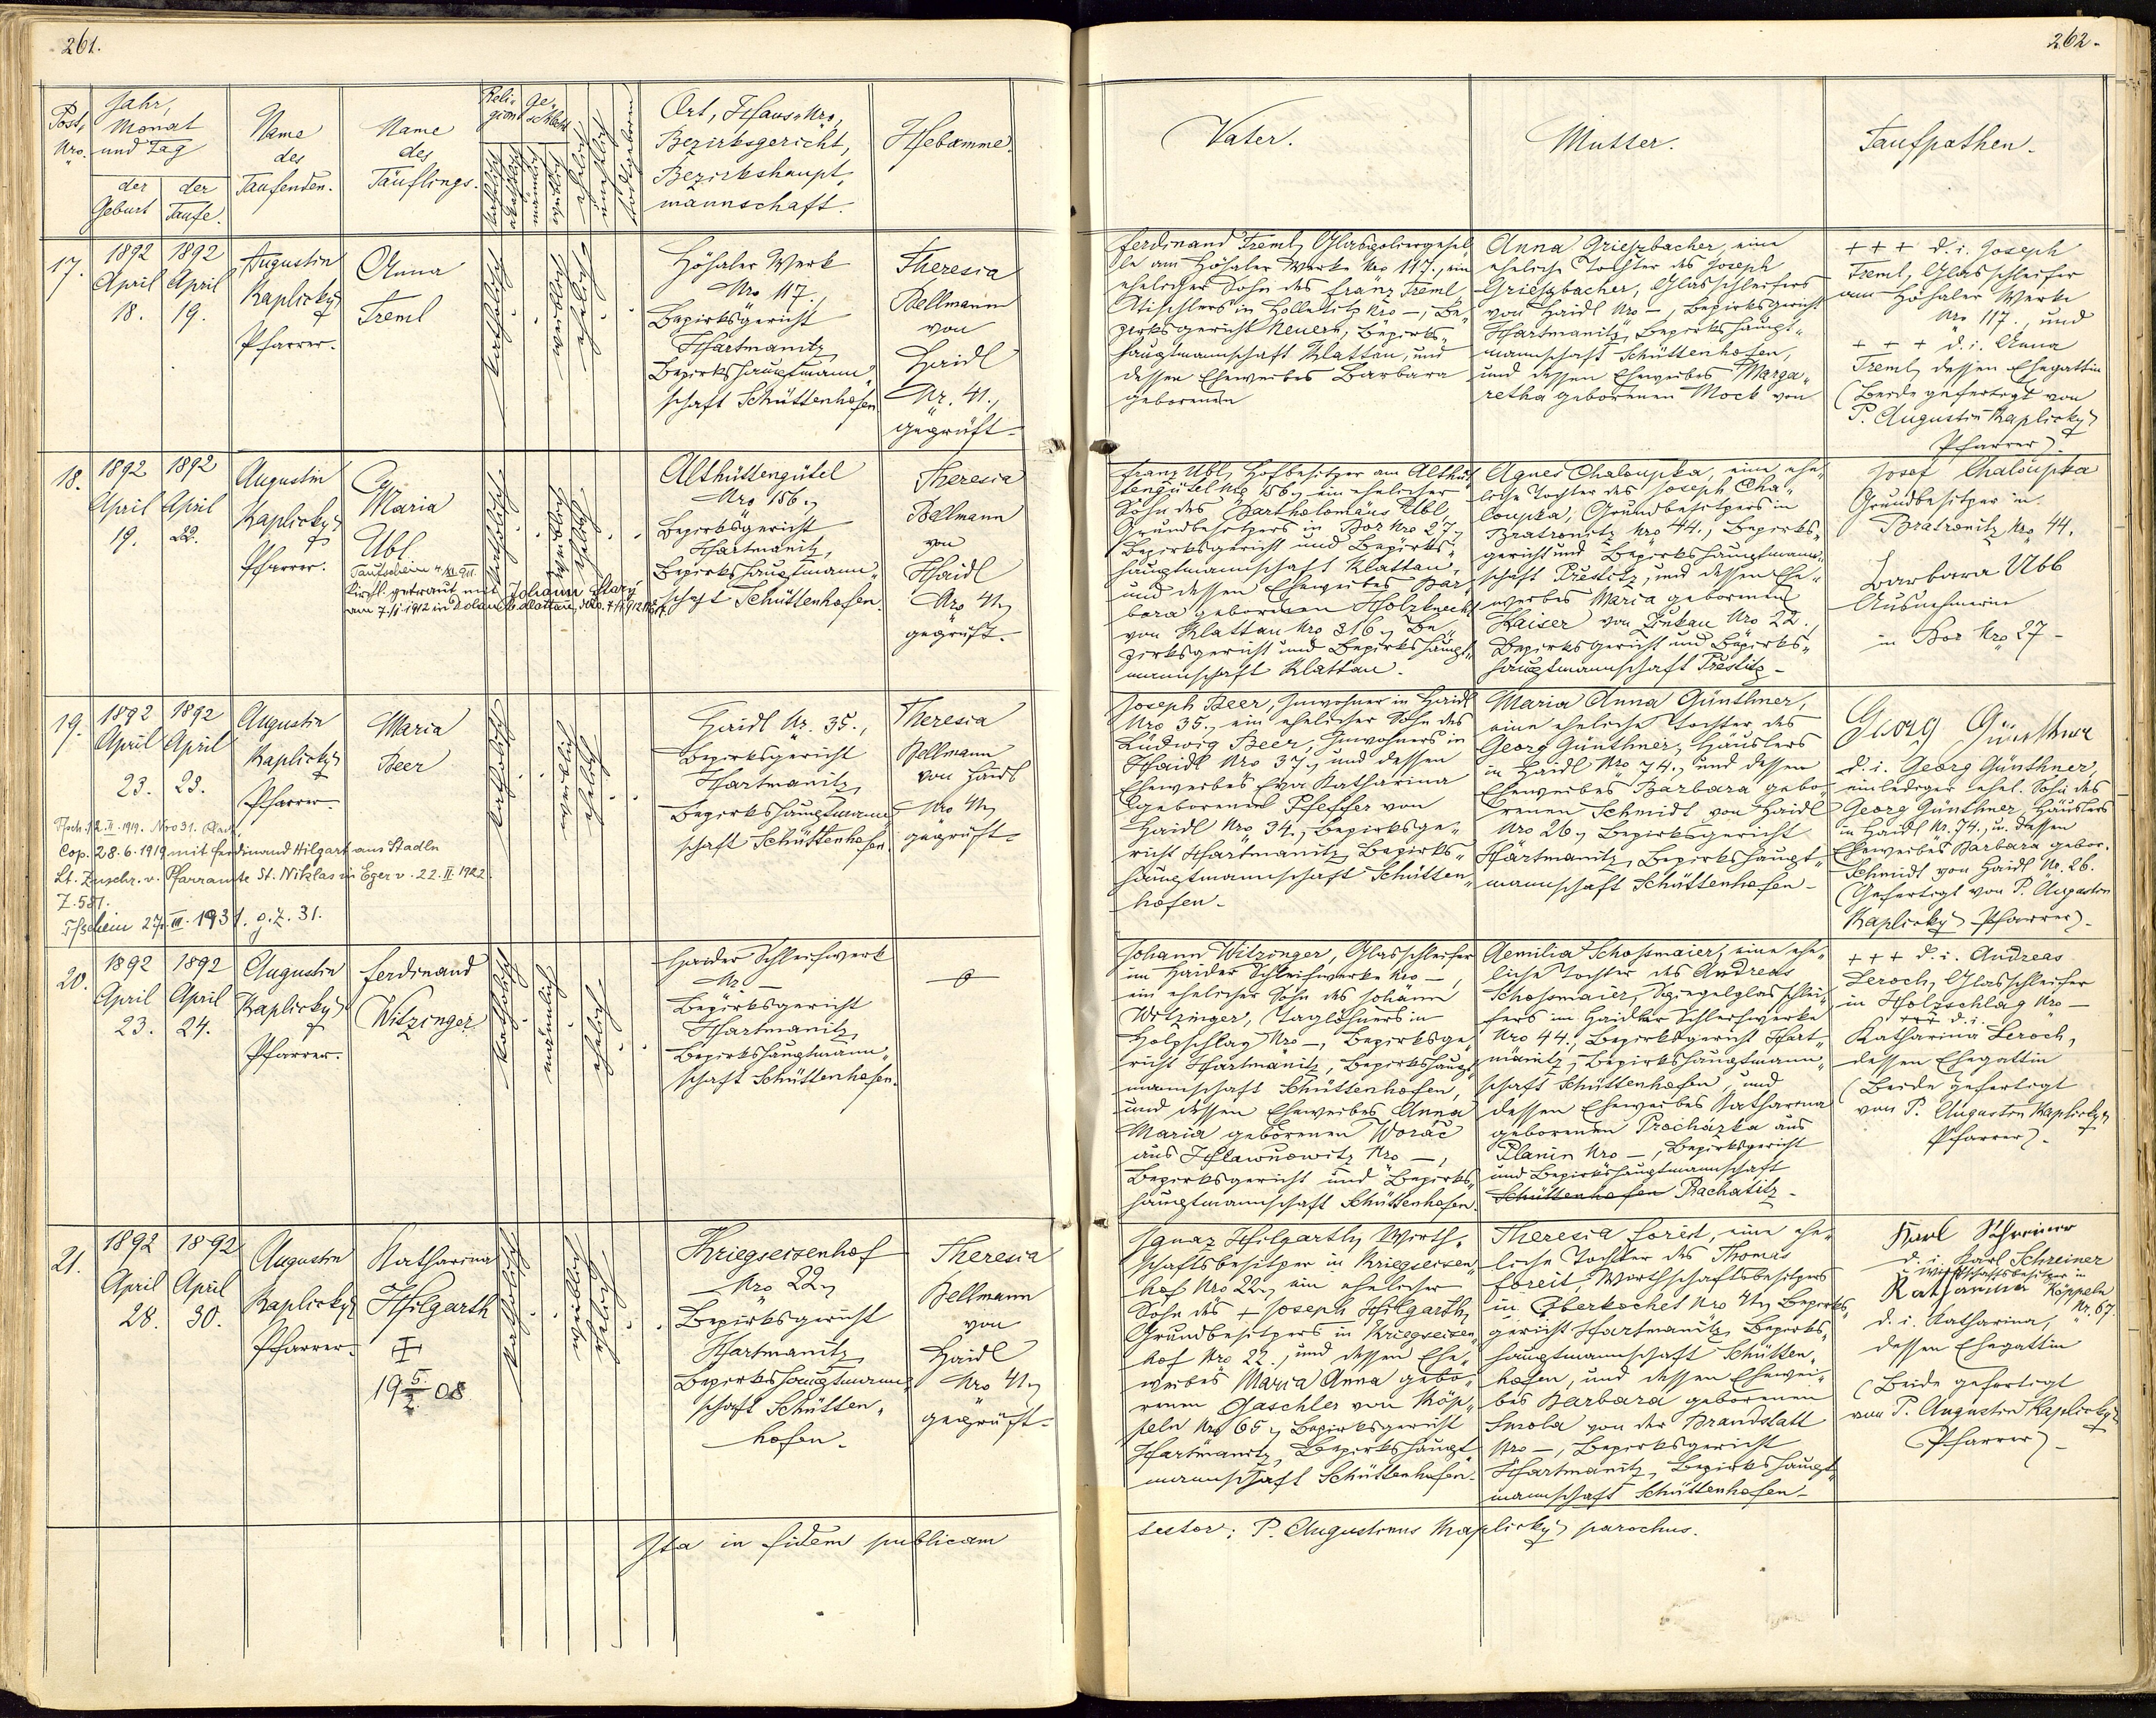 261.
Post, Nro.
Jahr, Monat und Tag
der Geburt
der Taufe.
Name des Taufenden.
Name des Täuflings.
Religion
Geschlecht
katholisch
männlich
weiblich
ehelich
unehelich
todtgeboren
Ort, Haus-Nro,
Bezirksgericht,
Bezirkshaupt-
mannschaft.
Hebamme.
17.
1892 April 18.
1892 April 19.
Augustin
Kaplický
Pfarrer.
Anna
Treml
katholisch
weiblich
ehelich
Höhaler Werk
Nro 117.,
Bezirksgericht
Hartmanitz,
Bezirkshauptmann-
schaft Schüttenhofen
Theresia
Bellmann
von
Haidl
Nr. 41.,
geprüft.
18.
1892 April 19.
1892 April 22.
Augustin
Kaplický
Pfarrer.
Maria
Ubl.
Kirchl. getraut mit Johann Starý
am 7./1. 1912 in
katholisch
weiblich
ehelich
Althüttengütel
Nro 156.,
Bezirksgericht
Hartmanitz,
Bezirkshauptmann-
schaft Schüttenhofen.
Theresia
Bellmann
von
Haidl
Nro 41.,
geprüft.
19.
1892 April 23.
1892 April 23.
Augustin
Kaplický
Pfarrer.
Maria
Beer
Cop. 28.6.1919 mit Ferdinand Hilgart aus Stadln
Lt. Zuschr. v. Pfarramte St. Niklas in Eger v. 22.II.1922.
Z. 581.
Tfschein 27.III.1931. g.Z. 31.
katholisch
weiblich
ehelich
Haidl Nr. 35.,
Bezirksgericht
Hartmanitz,
Bezirkshauptmann-
schaft Schüttenhofen.
Theresia
Bellmann
von Haidl
Nro 41.,
geprüft.
20.
1892 April 23.
1892 April 24.
Augustin
Kaplický
Pfarrer.
Ferdinand
Witzinger
katholisch
männlich
ehelich
Haider Schleifwerk
Nr. —
Bezirksgericht
Hartmanitz,
Bezirkshauptmann-
schaft Schüttenhofen.
21.
1892 April 28.
1892 April 30.
Augustin
Kaplický
Pfarrer.
Katharina
Hilgarth
19 5./2. 08
katholisch
weiblich
ehelich
Kriegseisenhof
Nro 22.,
Bezirksgericht
Hartmanitz,
Bezirkshauptmann-
schaft Schütten-
hofen.
Theresia
Bellmann
von
Haidl
Nro 41.,
geprüft.
Ita in fidem publicam
262.
Vater.
Mutter.
Taufpathen.
Ferdinand Treml, Glaspoliergesel
le am Höhaler Werke Nro 117., ein
ehelicher Sohn des Franz Treml
Tischlers in Holletitz Nro —, Be-
zirksgericht Neuern, Bezirks-
hauptmannschaft Klattau, und
dessen Eheweibes Barbara
geborenen
Anna Grieszbacher, eine
eheliche Tochter des Joseph
Grieszbacher, Glasschleifers
von Haidl Nro —, Bezirksgericht
Hartmanitz, Bezirkshaupt-
mannschaft Schüttenhofen,
und dessen Eheweibes Marga-
retha geborenen Mock von
+++ d.i. Joseph
Treml, Glasschleifer
am Höhaler Werke
Nro 117., und
+++ d.i. Anna
Treml, dessen Ehegattin
(Beide gefertigt von
P. Augustin Kaplický
Pfarrer).
Franz Ubl, Hofbesitzer am Althüt
tengütel Nro 156., ein ehelicher
Sohn des Bartholomäus Ubl,
Grundbesitzers in Bor Nro 27.,
Bezirksgericht und Bezirks-
hauptmannschaft Klattau,
und dessen Eheweibes Bar-
bara geborenen Holzknecht
von Klattau Nro 316., Be-
zirksgericht und Bezirkshaupt-
mannschaft Klattau.
Agnes Chaloupka, eine ehe-
liche Tochter des Joseph Cha-
loupka, Grundbesitzers in
Bratronitz Nro 44., Bezirks-
gericht und Bezirkshauptmann-
schaft Přestitz, und dessen Ehe-
weibes Maria geborenen
Kaiser von Zinkau Nro 22.,
Bezirksgericht und Bezirks-
hauptmannschaft Prestitz.
Josef Chaloupka
Grundbesitzer in
Bratronitz Nro 44.
Barbara Ubl
Ausnehmerin
in Bor Nro 27.
Joseph Beer, Inwohner in Haidl
Nro 35., ein ehelicher Sohn des
Ludwig Beer, Inwohners in
Haidl Nro 37., und dessen
Eheweibes Eva Katharina
geborenen Pfeffer von
Haidl Nro 34., Bezirksge-
richt Hartmanitz, Bezirks-
hauptmannschaft Schütten-
hofen.
Maria Anna Günthner,
eine eheliche Tochter des
Georg Günthner, Häuslers
in Haidl Nro 74., und dessen
Eheweibes Barbara gebo-
renen Schmidt von Haidl
Nro 26., Bezirksgericht
Hartmanitz, Bezirkshaupt-
mannschaft Schüttenhofen.
Georg Günthner
d.i. Georg Günthner,
ein lediger ehel. Sohn des
Georg Günthner, Häuslers
in Haidl Nr. 74., u. dessen
Eheweibes Barbara gebor.
Schmidt von Haidl Nr. 26.
(Gefertigt von P. Augustin
Kaplický Pfarrer).
Johann Witzinger, Glasschleifer
im Haider Schleifwerke Nro —,
ein ehelicher Sohn des Johann
Witzinger, Taglöhners in
Holzschlag Nro —, Bezirksge
richt Hartmanitz, Bezirkshaupt
mannschaft Schüttenhofen,
und dessen Eheweibes Anna
Maria geborenen Worač
aus Hlawnowitz Nro —,
Bezirksgericht und Bezirks-
hauptmannschaft Schüttenhofen.
Aemilia Schossmaier, eine ehe-
liche Tochter des Andreas
Schossmaier, Spiegelglasschlei-
fers im Haidler Schleifwerke
Nro 44., Bezirksgericht Hart-
manitz, Bezirkshauptmann-
schaft Schüttenhofen, und
dessen Eheweibes Katharina
geborenen Prochazka aus
Planin Nro —, Bezirksgericht
und Bezirkshauptmannschaft
Schüttenhofen Prachatitz.
+++ d.i. Andreas
Leroch, Glasschleifer
in Holzschlag Nro —
+++ d.i.
Katharina Leroch,
dessen Ehegattin
(Beide gefertigt
von P. Augustin Kaplický,
Pfarrer).
Ignaz Hilgarth, Wirth-
schaftsbesitzer in Kriegseisen-
hof Nro 22., ein ehelicher
Sohn des + Joseph Hilgarth,
Grundbesitzers in Kriegseisen-
hof Nro 22., und dessen Ehe-
weibes Maria Anna gebo-
renen Gaschler von Köp-
peln Nro 65., Bezirksgericht
Hartmanitz, Bezirkshaupt
mannschaft Schüttenhofen.
Theresia Foreit, eine ehe-
liche Tochter des Thomas
Foreit, Wirthschaftsbesitzers
in Oberkochet Nro 41., Bezirks-
gericht Hartmanitz, Bezirks-
hauptmannschaft Schütten-
hofen, und dessen Ehewei-
bes Barbara geborenen
Smola von der Brandstatt
Nro —, Bezirksgericht
Hartmanitz, Bezirkshaupt-
mannschaft Schüttenhofen.
Karl Schreiner
d.i. Karl Schreiner
Wirthschaftsbesitzer in
Köppeln
Nr. 67.
Katharina
d.i. Katharina,
dessen Ehegattin
(Beide gefertigt
von P. Augustin Kaplický
Pfarrer).
testor: P. Augustinus Kaplický parochus.